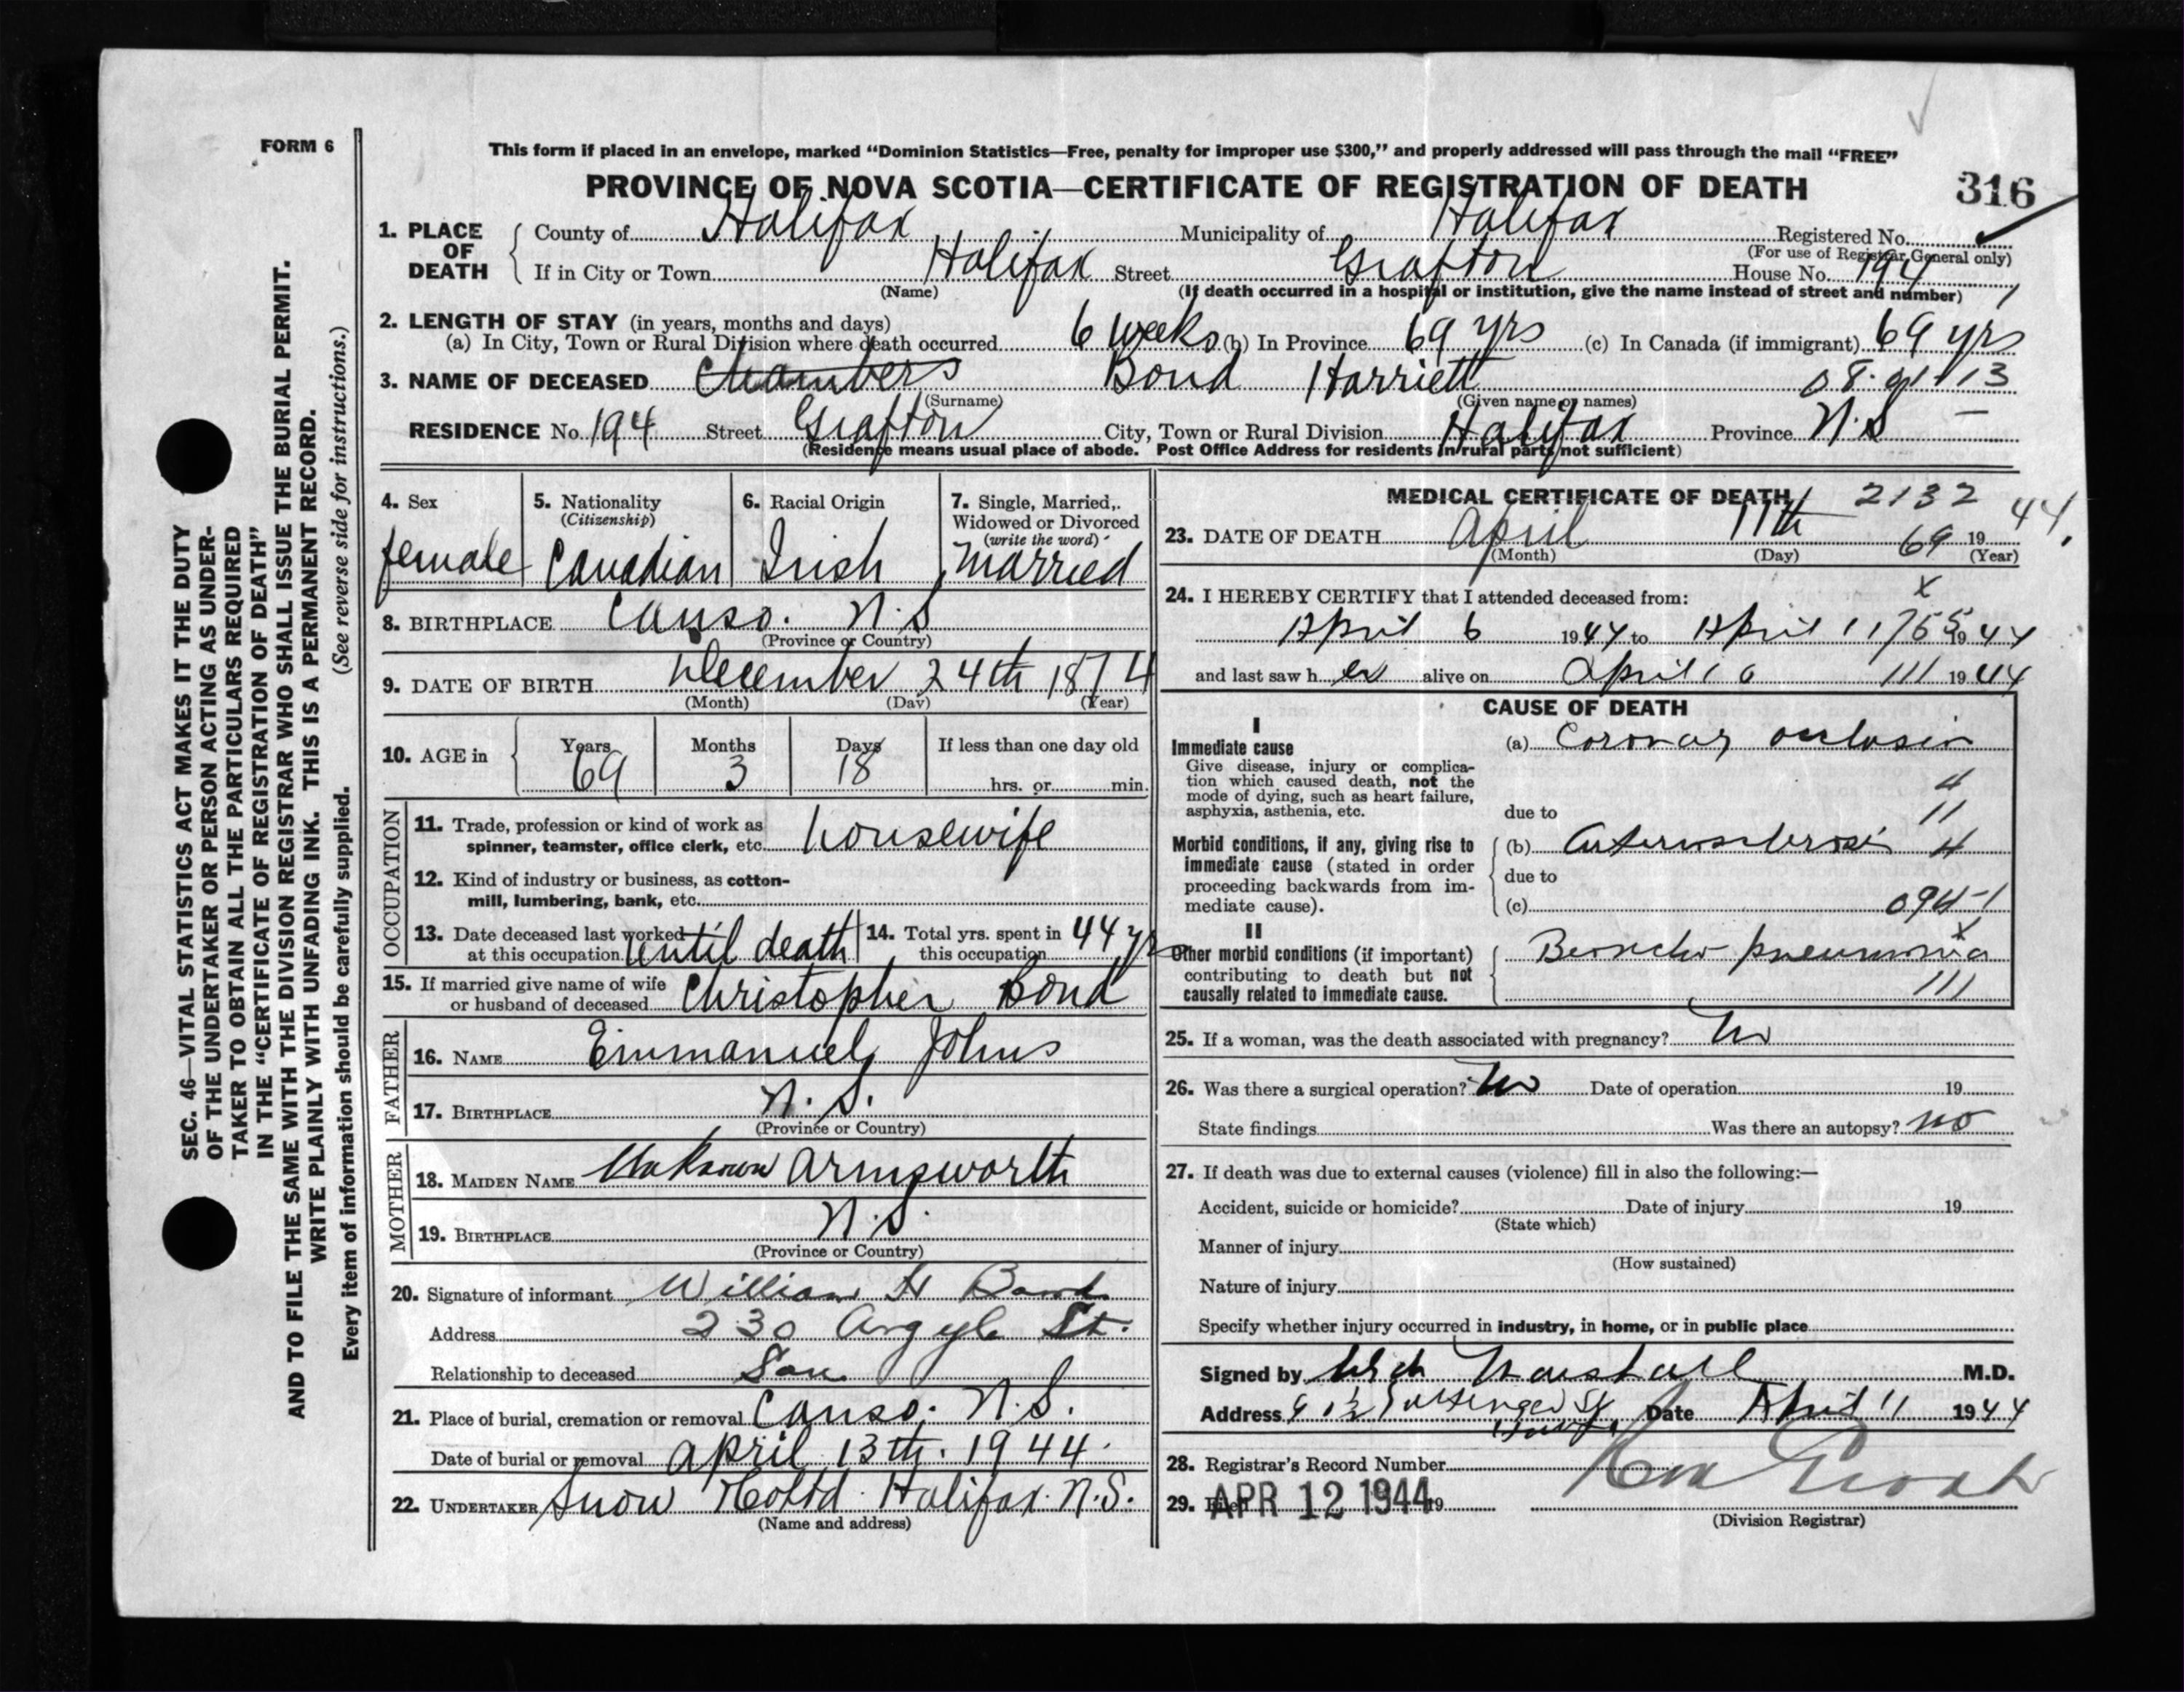 FORM 6
This form if placed in an envelope, marked “Dominion Statistics—Free, penalty for improper use $300,” and properly addressed will pass through the mail “FREE”
PROVINCE OF NOVA SCOTIA—CERTIFICATE OF REGISTRATION OF DEATH
316
1. PLACE OF DEATH
County of Halifax Municipality of Halifax Registered No.
(For use of Registrar General only)
If in City or Town Halifax Street Grafton House No. 194
(Name) (If death occurred in a hospital or institution, give the name instead of street and number)
2. LENGTH OF STAY (in years, months and days)
(a) In City, Town or Rural Division where death occurred 6 weeks (b) In Province 69 yrs (c) In Canada (if immigrant) 69 yrs
3. NAME OF DECEASED Chambers Bond Harriett
(Surname) (Given name or names)
RESIDENCE No. 194 Street Grafton City, Town or Rural Division Halifax Province N.S
(Residence means usual place of abode. Post Office Address for residents in rural parts not sufficient)
4. Sex
female
5. Nationality
(Citizenship)
Canadian
6. Racial Origin
Irish
7. Single, Married, Widowed or Divorced
(write the word)
Married
8. BIRTHPLACE Canso. N.S
(Province or Country)
9. DATE OF BIRTH December 24th 1874
(Month) (Day) (Year)
10. AGE in
Years 69
Months 3
Days 18
If less than one day old
hrs. or min.
OCCUPATION
11. Trade, profession or kind of work as
spinner, teamster, office clerk, etc. housewife
12. Kind of industry or business, as cotton-
mill, lumbering, bank, etc.
13. Date deceased last worked
at this occupation until death
14. Total yrs. spent in
this occupation 44 yrs
15. If married give name of wife
or husband of deceased Christopher Bond
FATHER
16. NAME Emmanuel Johns
17. BIRTHPLACE N.S.
(Province or Country)
MOTHER
18. MAIDEN NAME Unknown Armsworth
19. BIRTHPLACE N.S.
(Province or Country)
20. Signature of informant William H Bond
Address 230 Argyle St.
Relationship to deceased Son
21. Place of burial, cremation or removal Canso. N.S.
Date of burial or removal April 13th. 1944.
22. UNDERTAKER Snow Halifax. N.S.
(Name and address)
MEDICAL CERTIFICATE OF DEATH 2132
23. DATE OF DEATH April 11th 69 19 44.
(Month) (Day) (Year)
24. I HEREBY CERTIFY that I attended deceased from:
x
April 6 1944 to April 11 1944
and last saw her alive on April 1944
CAUSE OF DEATH
I
Immediate cause
Give disease, injury or complica-
tion which caused death, not the
mode of dying, such as heart failure,
asphyxia, asthenia, etc.
(a) Coronary occlusion
4
due to 11
Morbid conditions, if any, giving rise to
immediate cause (stated in order
proceeding backwards from im-
mediate cause).
(b) Arteriosclerosis 4
due to
(c) 094-1
x
II
Other morbid conditions (if important)
contributing to death but not
causally related to immediate cause.
Broncho pneumonia
111
25. If a woman, was the death associated with pregnancy? No
26. Was there a surgical operation? No Date of operation 19
State findings Was there an autopsy? no
27. If death was due to external causes (violence) fill in also the following:—
Accident, suicide or homicide? Date of injury 19
(State which)
Manner of injury
(How sustained)
Nature of injury
Specify whether injury occurred in industry, in home, or in public place
Signed by Marshall M.D.
Address St Date April 11 1944
28. Registrar's Record Number
29. Filed APR 12 1944 19
(Division Registrar)
SEC. 46—VITAL STATISTICS ACT MAKES IT THE DUTY
OF THE UNDERTAKER OR PERSON ACTING AS UNDER-
TAKER TO OBTAIN ALL THE PARTICULARS REQUIRED
IN THE “CERTIFICATE OF REGISTRATION OF DEATH”
AND TO FILE THE SAME WITH THE DIVISION REGISTRAR WHO SHALL ISSUE THE BURIAL PERMIT.
WRITE PLAINLY WITH UNFADING INK. THIS IS A PERMANENT RECORD.
Every item of information should be carefully supplied. (See reverse side for instructions.)